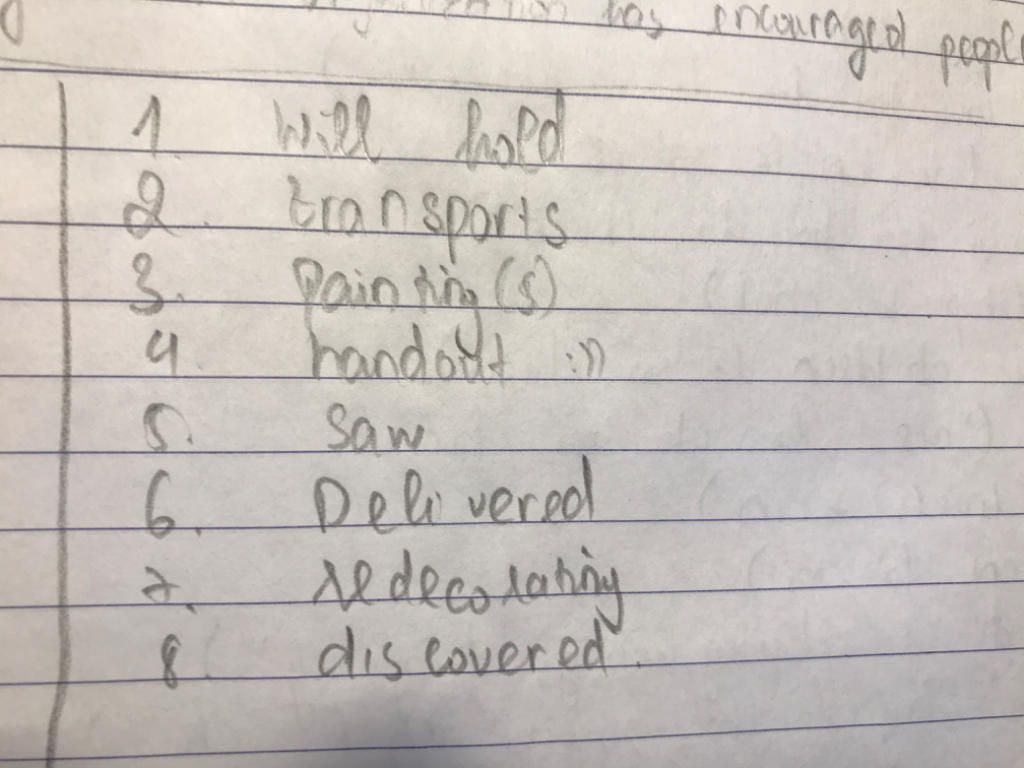 has encouraged people
1 will hold
2. transports
3. painting(s)
4. handout :))
5. saw
6. Delivered
7. redecorating
8 discovered.